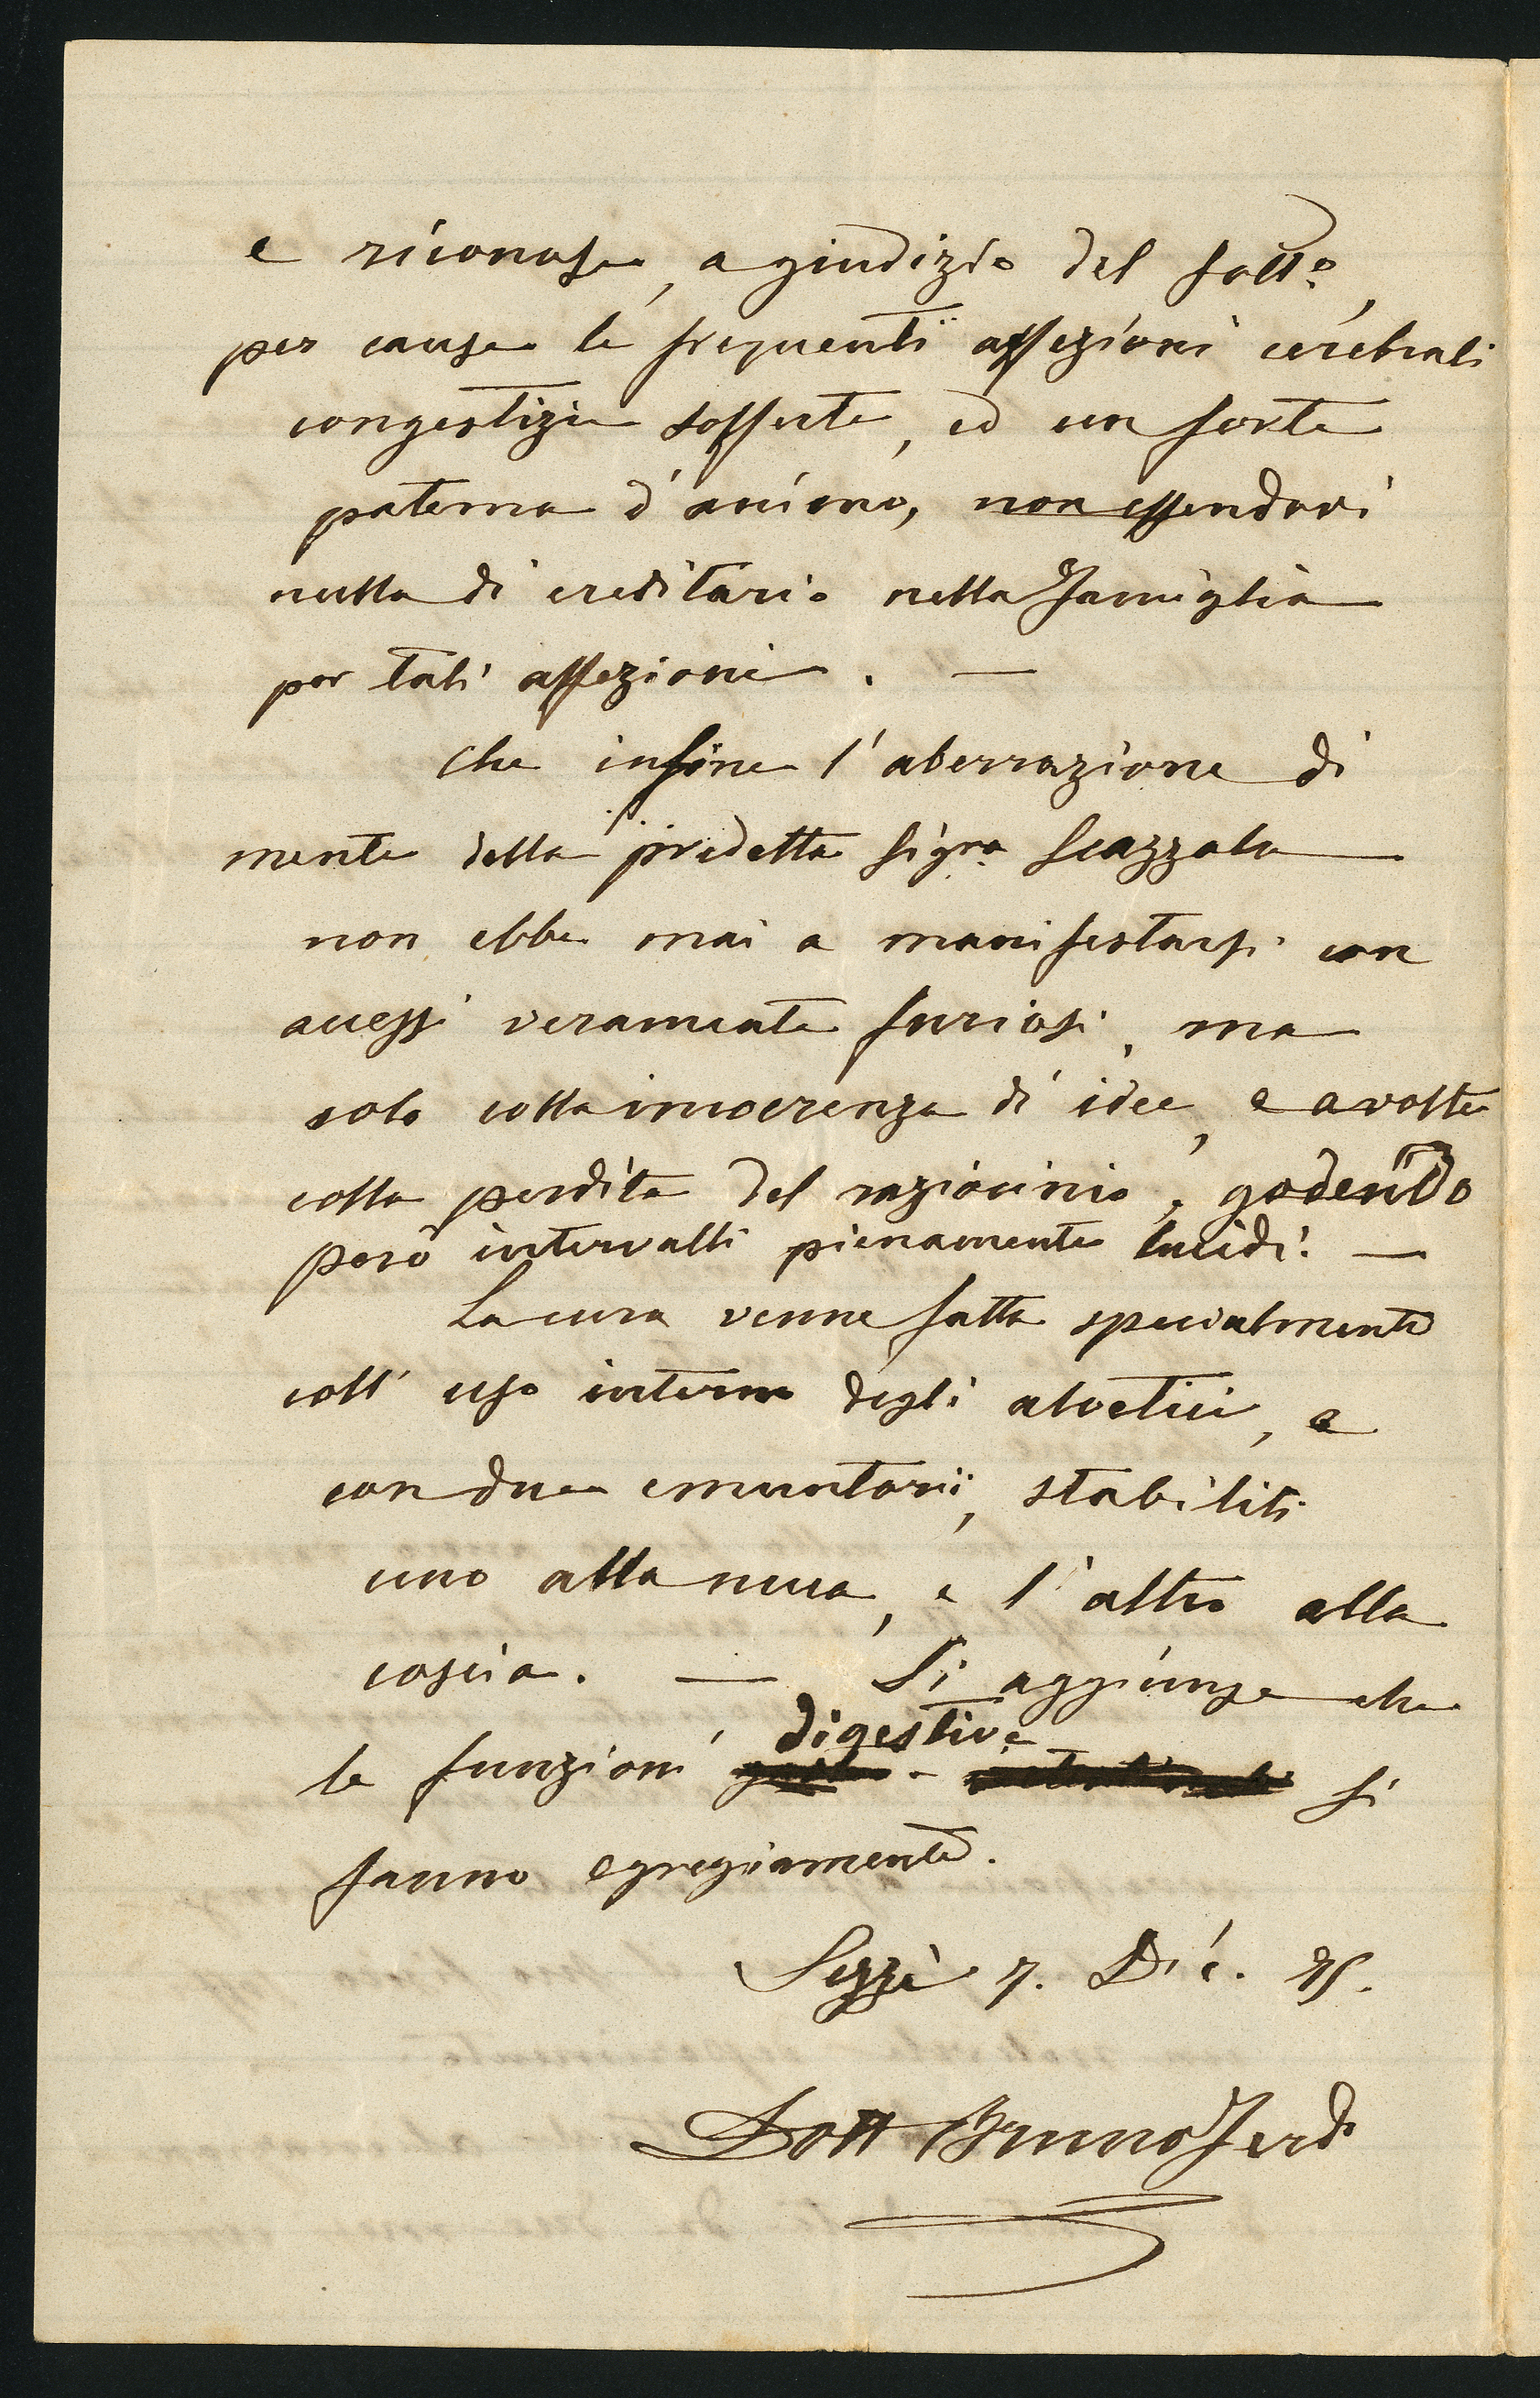 e riconosce, a giudizio del sotto,
per cause le frequenti affezioni cerebrali
congestizie sofferte, ed un forte
patema d'animo, non essendovi
nulla di ereditario nella Famiglia
per tali affezioni. —
Che infine l'aberrazione di
mente della predetta Sigra Scazzola
non ebbe mai a manifestarsi con
accessi veramente furiosi, ma
solo colla incoerenza di idee, e a volte
colla perdita del raziocinio, godendo
però intervalli pienamente lucidi. —
La cura venne fatta specialmente
coll' uso interno degli aloetici, e
con due emuntorii, stabiliti
uno alla nuca, e l'altro alla
coscia. — Si aggiunge che
le funzioni digestive si
fanno egregiamente.
Sezzè 7. Dic. 75.
Dott Bruno Ferdo